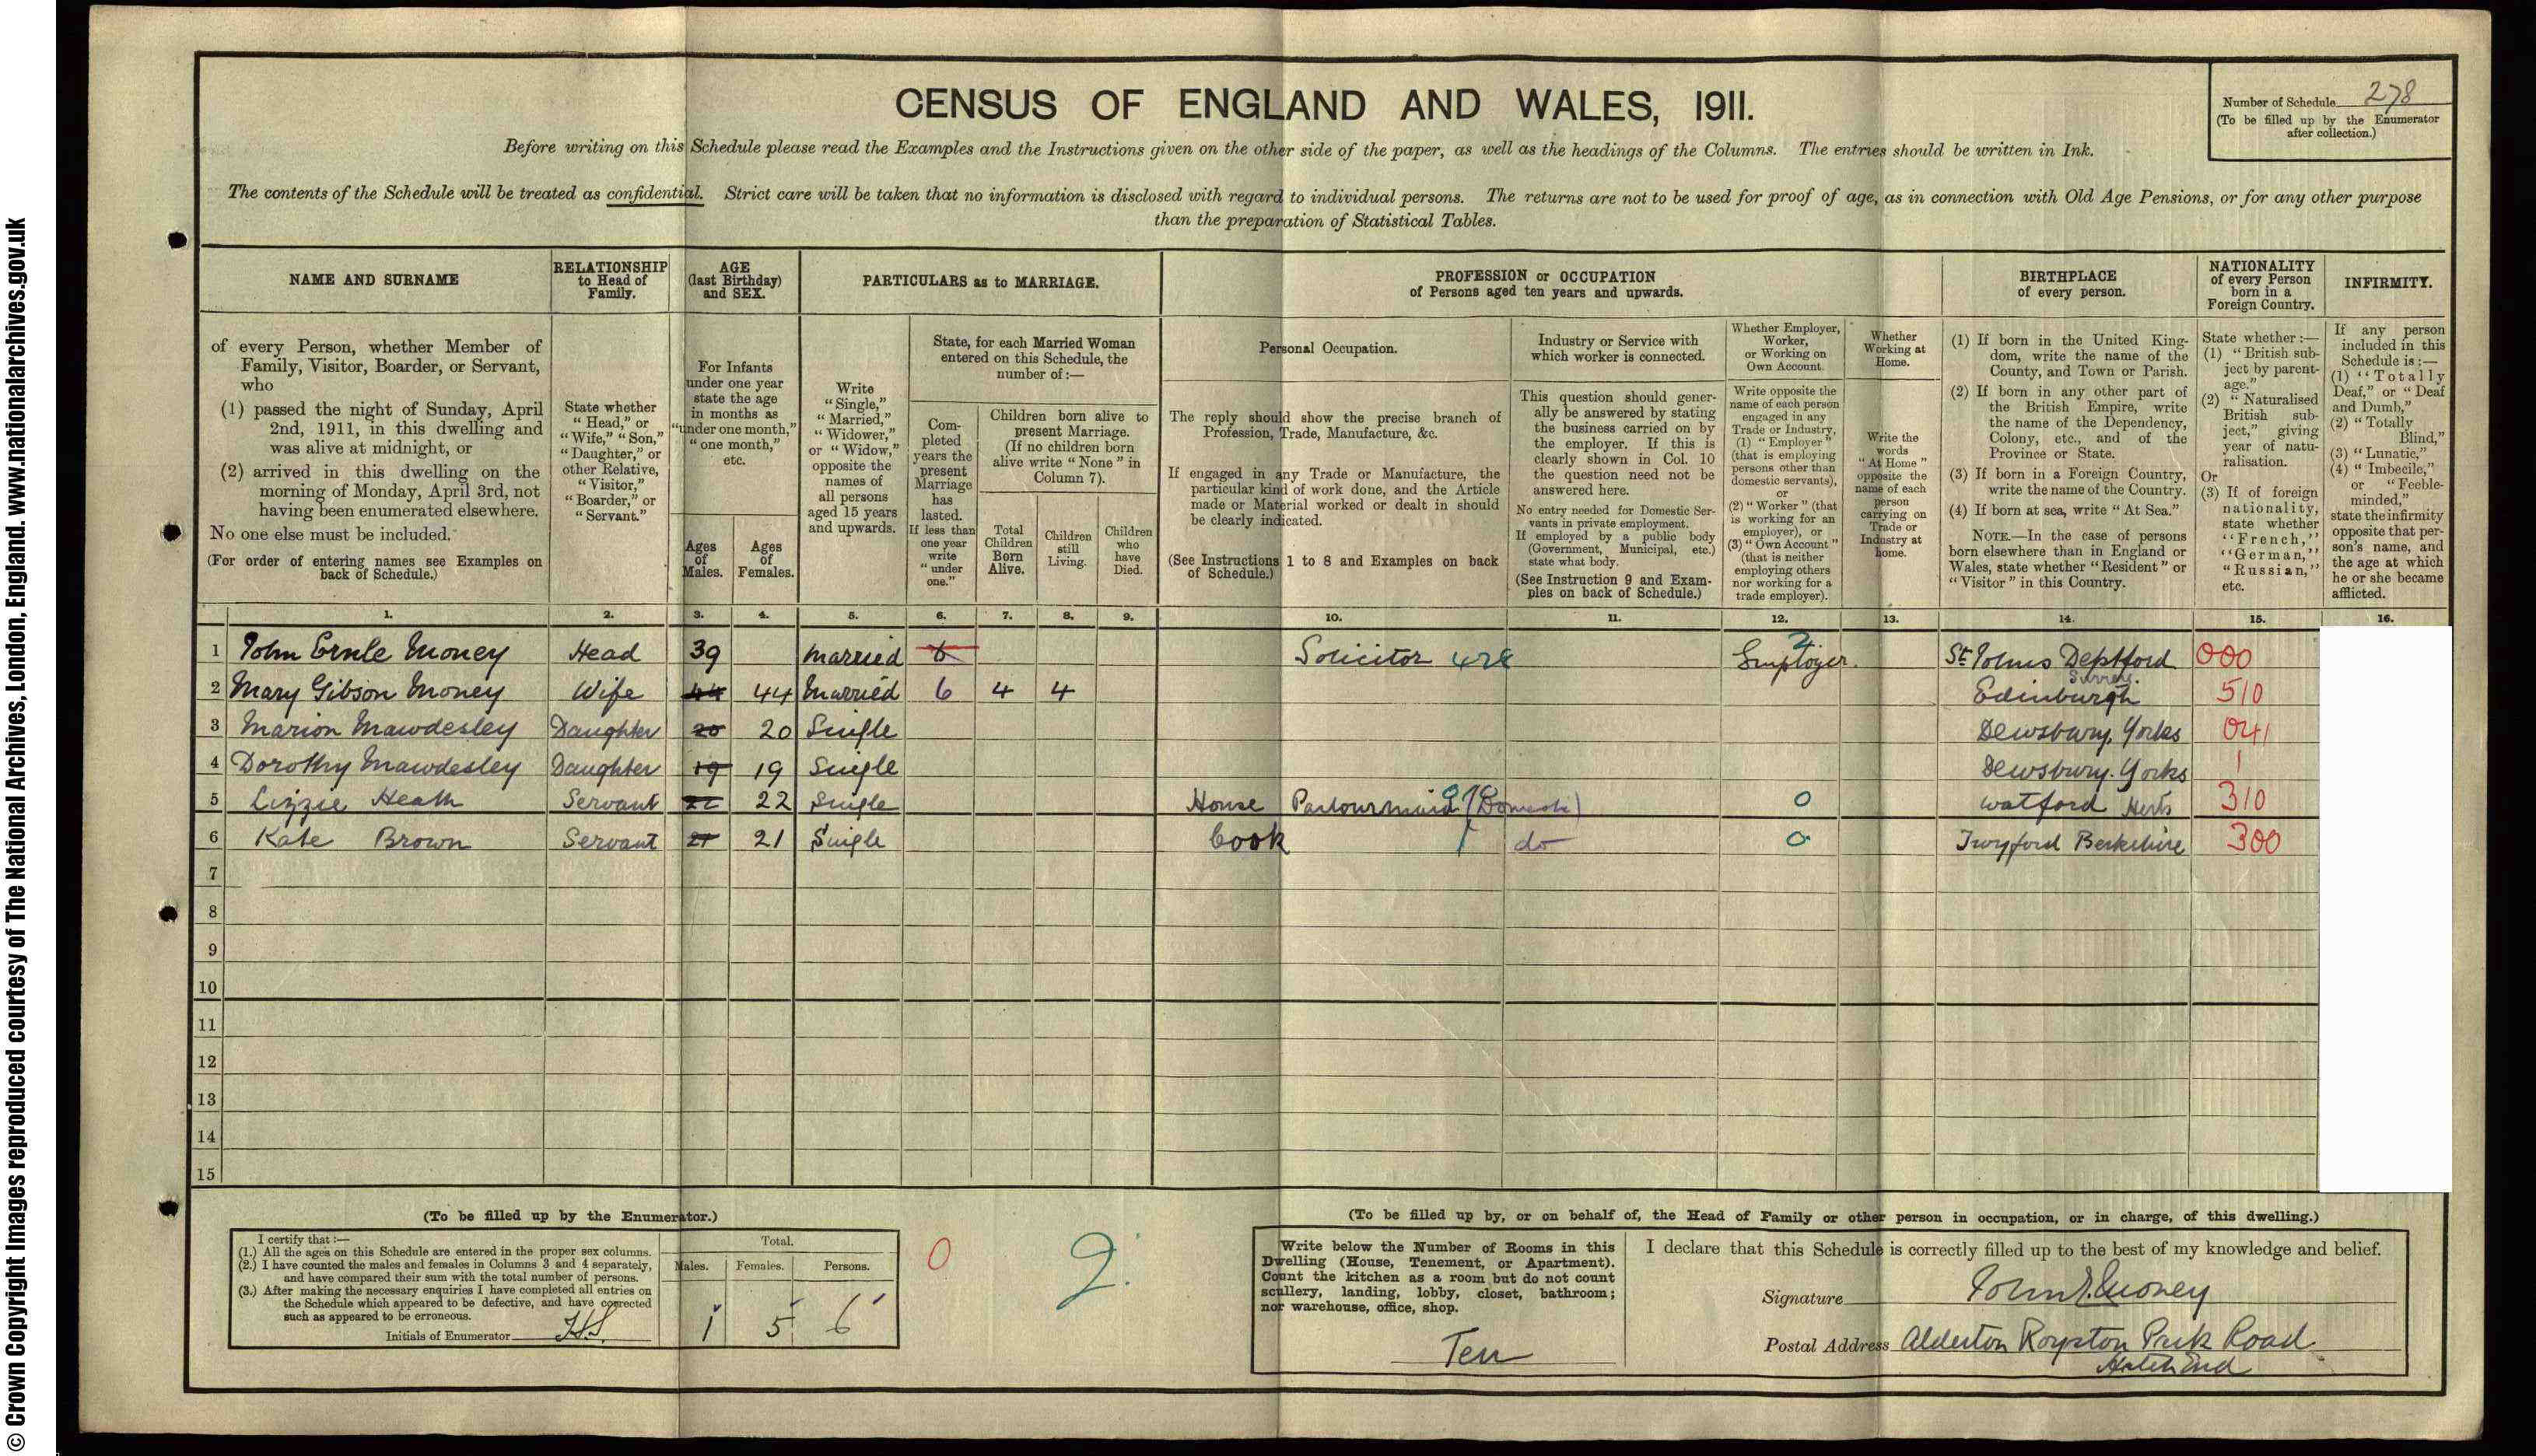 © Crown Copyright Images reproduced courtesy of The National Archives, London, England. www.nationalarchives.gov.uk
CENSUS OF ENGLAND AND WALES, 1911.
Number of Schedule 278
(To be filled up by the Enumerator
after collection.)
Before writing on this Schedule please read the Examples and the Instructions given on the other side of the paper, as well as the headings of the Columns. The entries should be written in Ink.
The contents of the Schedule will be treated as confidential. Strict care will be taken that no information is disclosed with regard to individual persons. The returns are not to be used for proof of age, as in connection with Old Age Pensions, or for any other purpose
than the preparation of Statistical Tables.
NAME AND SURNAME
of every Person, whether Member of
Family, Visitor, Boarder, or Servant,
who
(1) passed the night of Sunday, April
2nd, 1911, in this dwelling and
was alive at midnight, or
(2) arrived in this dwelling on the
morning of Monday, April 3rd, not
having been enumerated elsewhere.
No one else must be included.
(For order of entering names see Examples on
back of Schedule.)
RELATIONSHIP
to Head of
Family.
State whether
"Head," or
"Wife," "Son,"
"Daughter," or
other Relative,
"Visitor,"
"Boarder," or
"Servant."
AGE
(last Birthday)
and SEX.
For Infants
under one year
state the age
in months as
"under one month,"
"one month,"
etc.
Ages
of
Males.
Ages
of
Females.
PARTICULARS as to MARRIAGE.
Write
"Single,"
"Married,"
"Widower,"
or "Widow,"
opposite the
names of
all persons
aged 15 years
and upwards.
State, for each Married Woman
entered on this Schedule, the
number of:—
Com-
pleted
years the
present
Marriage
has
lasted.
If less than
one year
write
"under
one."
Children born alive to
present Marriage.
(If no children born
alive write "None" in
Column 7).
Total
Children
Born
Alive.
Children
still
Living.
Children
who
have
Died.
PROFESSION or OCCUPATION
of Persons aged ten years and upwards.
Personal Occupation.
The reply should show the precise branch of
Profession, Trade, Manufacture, &c.
If engaged in any Trade or Manufacture, the
particular kind of work done, and the Article
made or Material worked or dealt in should
be clearly indicated.
(See Instructions 1 to 8 and Examples on back
of Schedule.)
Industry or Service with
which worker is connected.
This question should gener-
ally be answered by stating
the business carried on by
the employer. If this is
clearly shown in Col. 10
the question need not be
answered here.
No entry needed for Domestic Ser-
vants in private employment.
If employed by a public body
(Government, Municipal, etc.)
state what body.
(See Instruction 9 and Exam-
ples on back of Schedule.)
Whether Employer,
Worker,
or Working on
Own Account.
Write opposite the
name of each person
engaged in any
Trade or Industry,
(1) "Employer"
(that is employing
persons other than
domestic servants),
or
(2) "Worker" (that
is working for an
employer), or
(3) "Own Account"
(that is neither
employing others
nor working for a
trade employer).
Whether
Working at
Home.
Write the
words
"At Home"
opposite the
name of each
person
carrying on
Trade or
Industry at
home.
BIRTHPLACE
of every person.
(1) If born in the United King-
dom, write the name of the
County, and Town or Parish.
(2) If born in any other part of
the British Empire, write
the name of the Dependency,
Colony, etc., and of the
Province or State.
(3) If born in a Foreign Country,
write the name of the Country.
(4) If born at sea, write "At Sea."
NOTE.—In the case of persons
born elsewhere than in England or
Wales, state whether "Resident" or
"Visitor" in this Country.
NATIONALITY
of every Person
born in a
Foreign Country.
State whether:—
(1) "British sub-
ject by parent-
age."
(2) "Naturalised
British sub-
ject," giving
year of natu-
ralisation.
Or
(3) If of foreign
nationality,
state whether
"French,"
"German,"
"Russian,"
etc.
INFIRMITY.
If any person
included in this
Schedule is:—
(1) "Totally
Deaf," or "Deaf
and Dumb,"
(2) "Totally
Blind,"
(3) "Lunatic,"
(4) "Imbecile,"
or "Feeble-
minded,"
state the infirmity
opposite that per-
son's name, and
the age at which
he or she became
afflicted.
1. 2. 3. 4. 5. 6. 7. 8. 9. 10. 11. 12. 13. 14. 15. 16.
1 John Ernle Money Head 39 Married 6 Solicitor 428 Employer 2 St Johns Deptford Surrey. 000
2 Mary Gibson Money Wife 44 44 Married 6 4 4 Edinburgh 510
3 Marion Mawdesley Daughter 20 20 Single Dewsbury, Yorks 041
4 Dorothy Mawdesley Daughter 19 19 Single Dewsbury. Yorks 1
5 Lizzie Heath Servant 22 22 Single House Parlourmaid (Domestic) 0 Watford Herts 310
6 Kate Brown Servant 21 21 Single Cook do 0 Twyford Berkshire 300
7
8
9
10
11
12
13
14
15
(To be filled up by the Enumerator.)
I certify that:—
(1.) All the ages on this Schedule are entered in the proper sex columns.
(2.) I have counted the males and females in Columns 3 and 4 separately,
and have compared their sum with the total number of persons.
(3.) After making the necessary enquiries I have completed all entries on
the Schedule which appeared to be defective, and have corrected
such as appeared to be erroneous.
Initials of Enumerator
Total.
Males. Females. Persons.
1 5 6
0 2.
(To be filled up by, or on behalf of, the Head of Family or other person in occupation, or in charge, of this dwelling.)
Write below the Number of Rooms in this
Dwelling (House, Tenement, or Apartment).
Count the kitchen as a room but do not count
scullery, landing, lobby, closet, bathroom;
nor warehouse, office, shop.
Ten
I declare that this Schedule is correctly filled up to the best of my knowledge and belief.
Signature John E. Money
Postal Address Alderton Royston Park Road
Hatch End